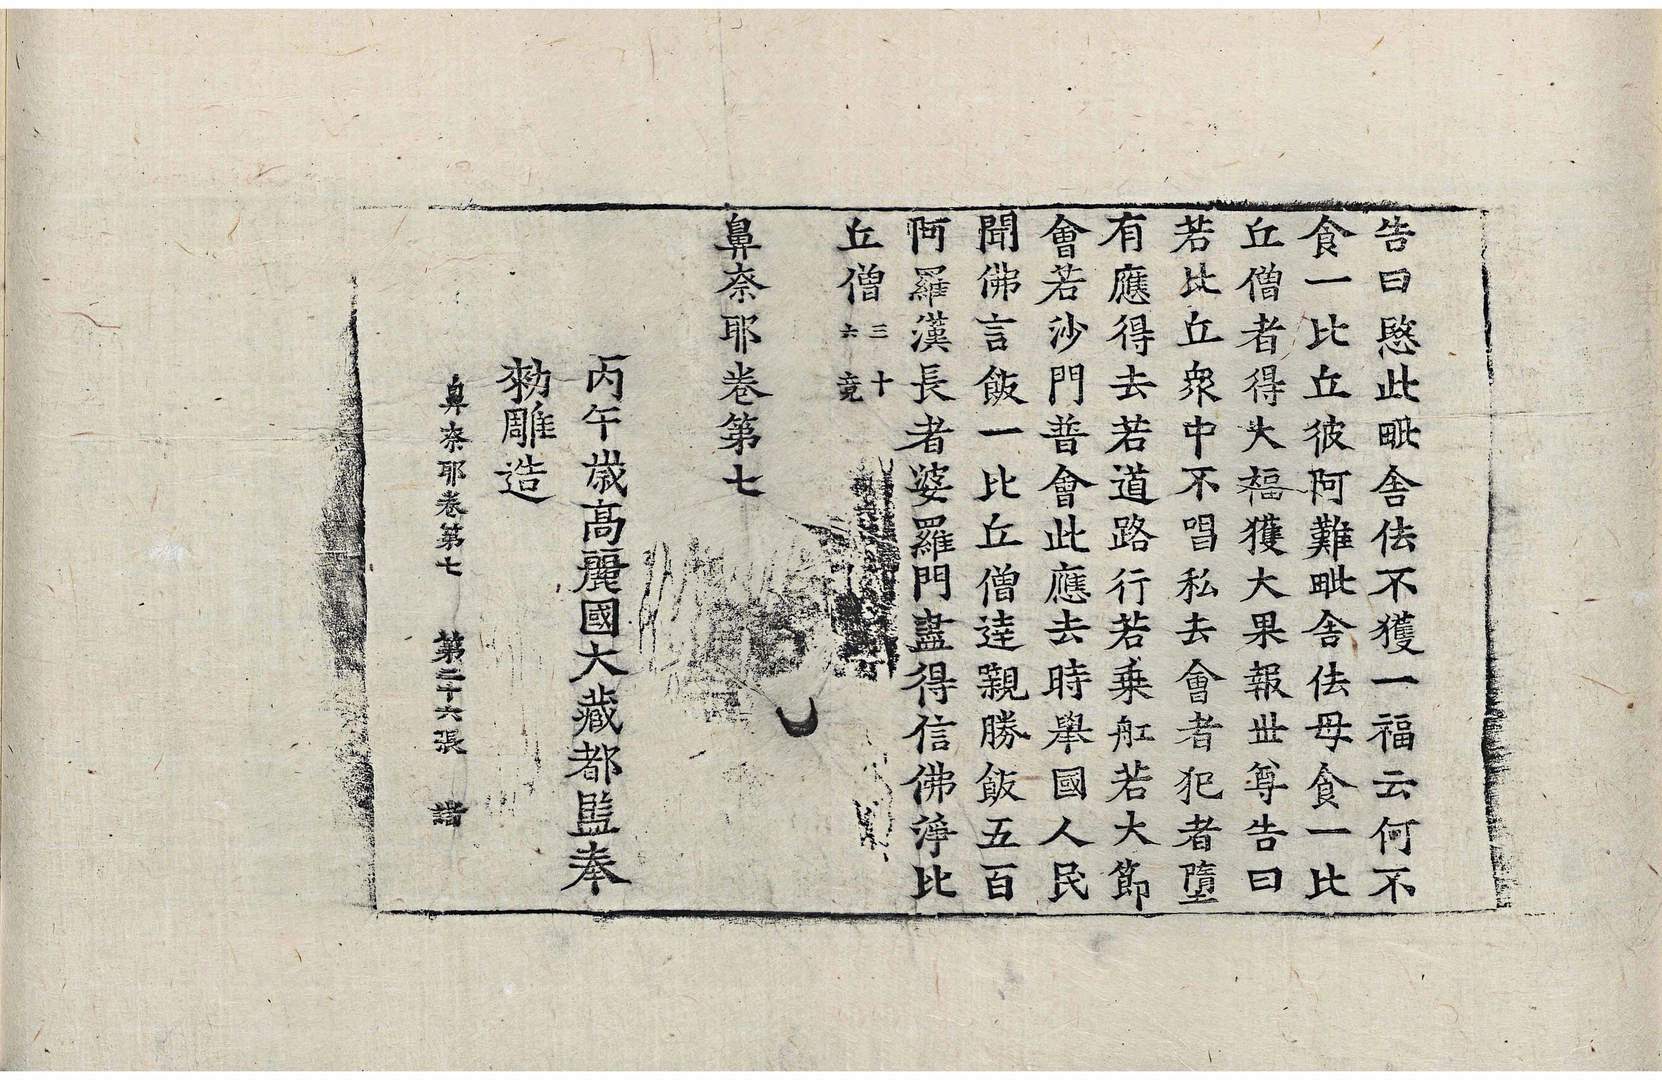 告曰愍此毗舍佉不獲一福云何不
食一比丘彼阿難毗舍佉母食一比
丘僧者得大福獲大果報丗尊告曰
若比丘衆中不唱私去會者犯者墮
有應得去若道路行若乗舡若大節
會若沙門普會此應去時舉國人民
聞佛言飯一比丘僧逹覲勝飯五百
阿羅漢長者婆羅門盡得信佛淨比
丘僧三十六竟
鼻奈耶卷第七
丙午歳高麗國大藏都監奉
勑雕造
鼻奈耶卷第七 第二十六張